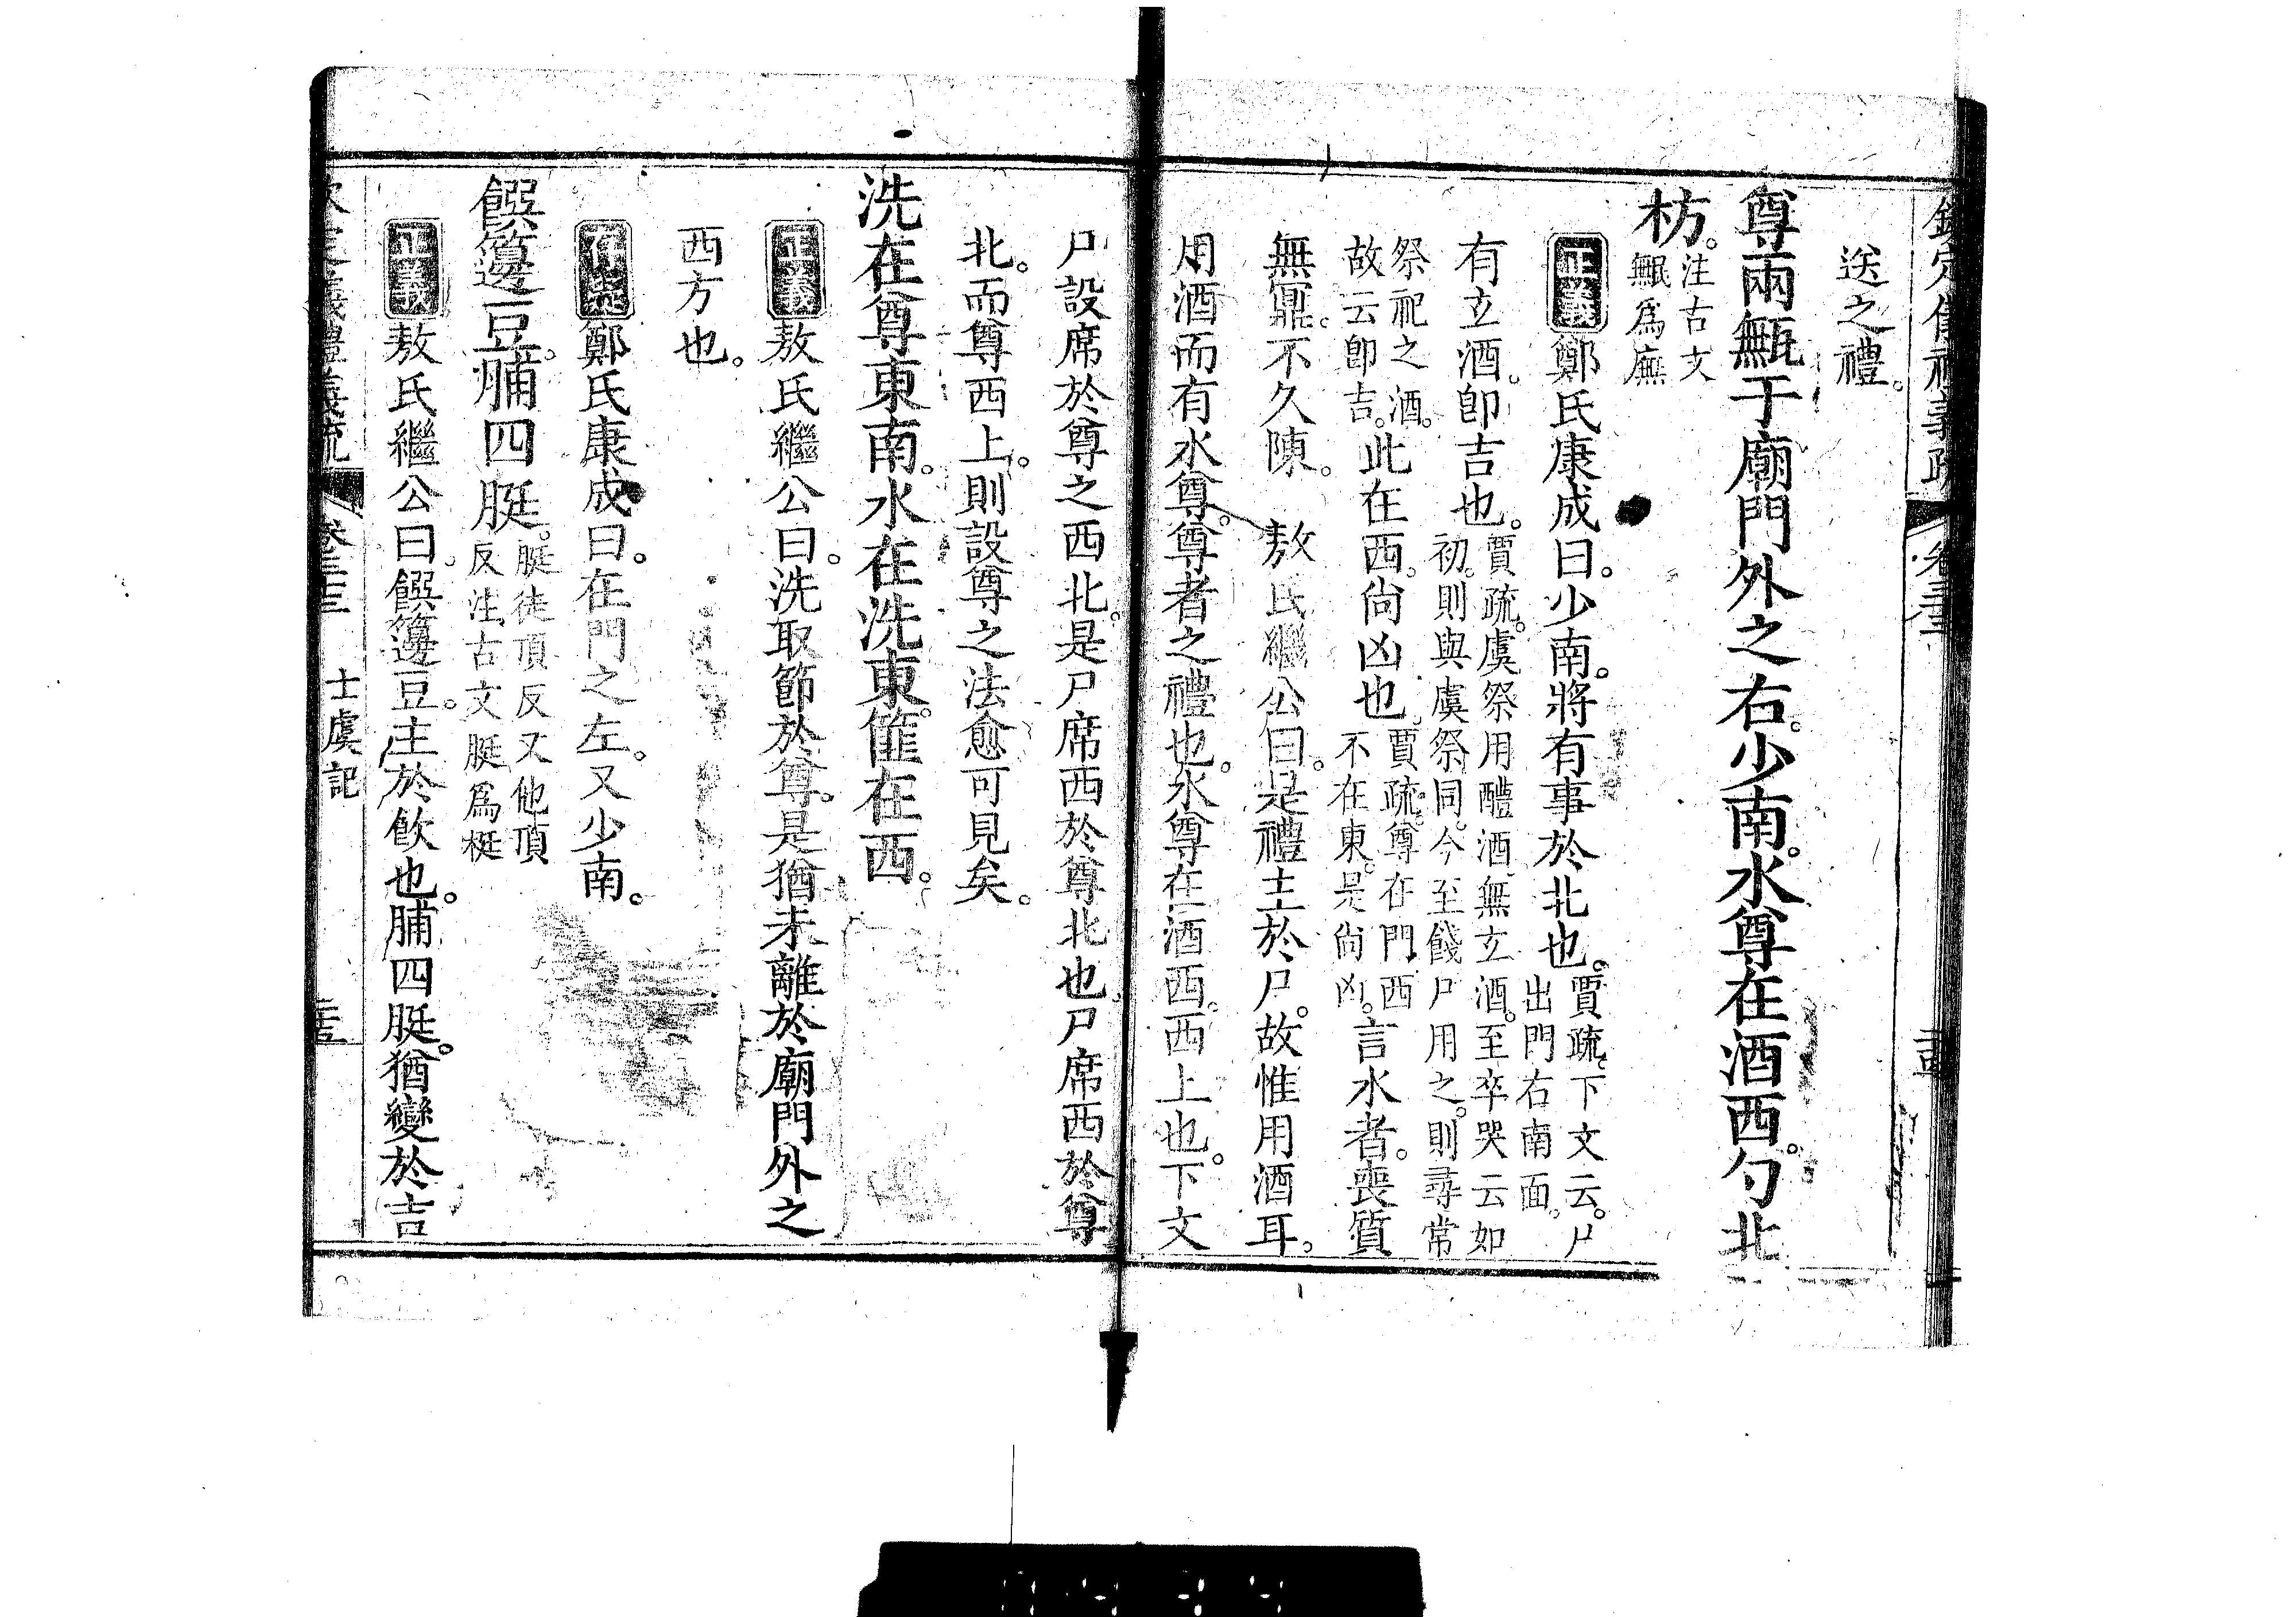 欽定儀禮義疏 卷三十三
送之禮。
尊兩甒于廟門外之右。少南。水尊在酒西。勺北
枋。注古文甒爲廡
正義鄭氏康成曰。少南。將有事於北也。賈疏。下文云。尸出門右南面。
有玄酒。卽吉也。賈疏。虞祭用醴酒。無玄酒。至卒哭云如初。則與虞祭同。今至餞尸用之。則尋常
祭祀之酒。故云卽吉。此在西。尙凶也。賈疏。尊在門西不在東。是尙凶。言水者。喪質
無鼏。不久陳。 敖氏繼公曰。是禮主於尸。故惟用酒耳。
用酒而有水尊。尊者之禮也。水尊在酒西。西上也。下文
尸設席於尊之西北。是尸席西於尊北也。尸席西於尊
北。而尊西上。則設尊之法愈可見矣。
洗在尊東南。水在洗東。篚在西。
正義敖氏繼公曰。洗取節於尊。是猶未離於廟門外之
西方也。
存疑鄭氏康成曰。在門之左。又少南。
饌籩豆。脯四脡。脡徒頂反又他頂反注古文脡爲梃
正義敖氏繼公曰。饌籩豆。主於飲也。脯四脡。猶變於吉
欽定儀禮義疏 卷三十三 士虞記